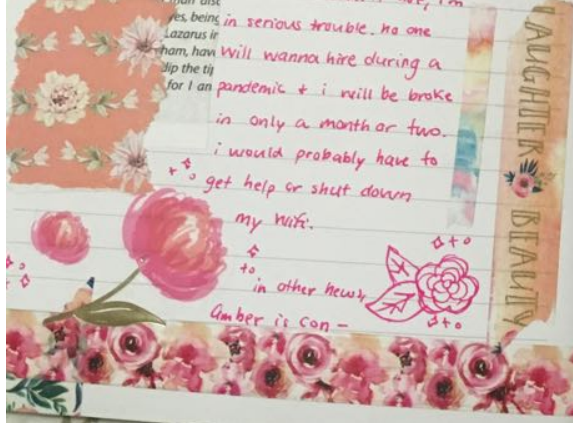 es, being
Lazarus in
ham, hav
dip the tip
for I am
in serious trouble. no one
will wanna hire during a
pandemic + i will be broke
in only a month or two.
i would probably have to
get help or shut down
my wifi.
in other news,
amber is con-
LAUGHTER
BEAUTY